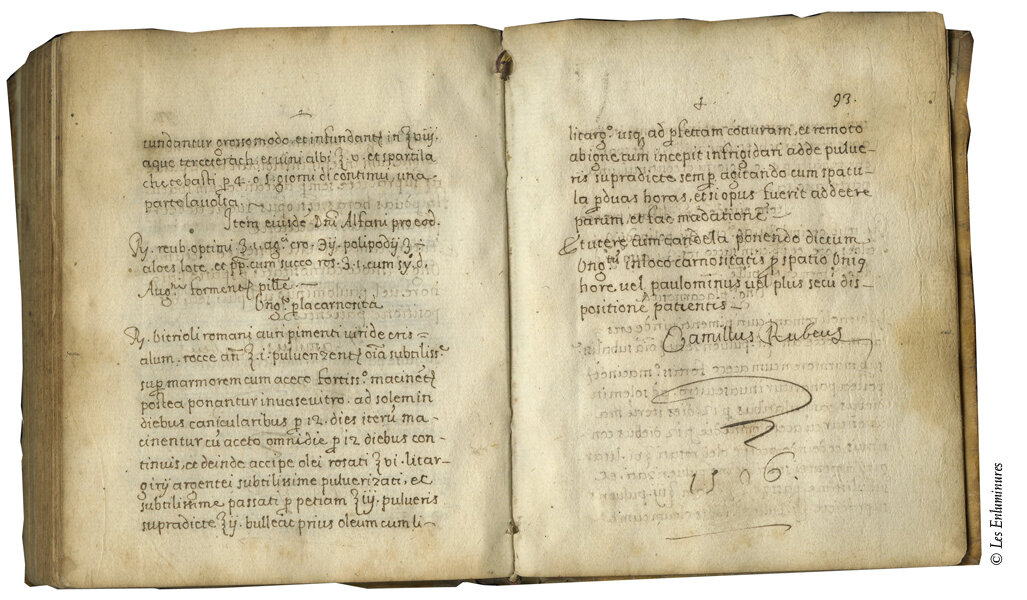 tundantur grossomodo, et infundant᷒ in ℥ viij.
aque terceterach, et uini albi ℥ v. et spartila
che te basti ꝑ 4. o 5. giorni di continui, una
parte la uolta.
Item eiusdē Dn̄i Alfani pro eod.
℞. reub. optimi ʒ.1. ag.º cro; ℈ij. polipodij ʒ
aloes lote, et pp̄. cum succo ros. ʒ.1. cum sy. d.
Aug.º forment᷒ pille.
Ung.º ꝑ la carnosità
℞. bitrioli romani auri pimenti uiride eris
alum. rocce an̄ ℥.i. puluerizent᷒ oīa subtiliss.º
sup marmorem cum aceto fortiss.º macinet᷒
postea ponantur inuase uitro. ad solem in
diebus canicularibus ꝑ 12. dies iterū ma-
cinentur cū aceto omni die ꝑ 12 diebus con-
tinuis, et deinde accipe olei rosati ℥ vi. litar-
girij argentei subtilissime puluerizati, et
subtilissime passati ꝑ petiam ℥ iij. pulueris
supradicte ℥ ij. bulleat prius oleum cum li-
93.
litarg.º usq; ad ꝑfettam cotturam, et remoto
ab igne cum incepit infrigidari adde pulue-
ris supradicte semꝑ agitando cum spatu-
la ꝑ duas horas, et si opus fuerit addere
parum, et fac madationē
Et utere cum candela ponendo dictum
Ung.tū in loco carnositatis ꝑ spatio Uniq
hore uel paulominus uel plus secū dis-
positionē patientis
Camillus Rubeus
1506.
© Les Enluminures